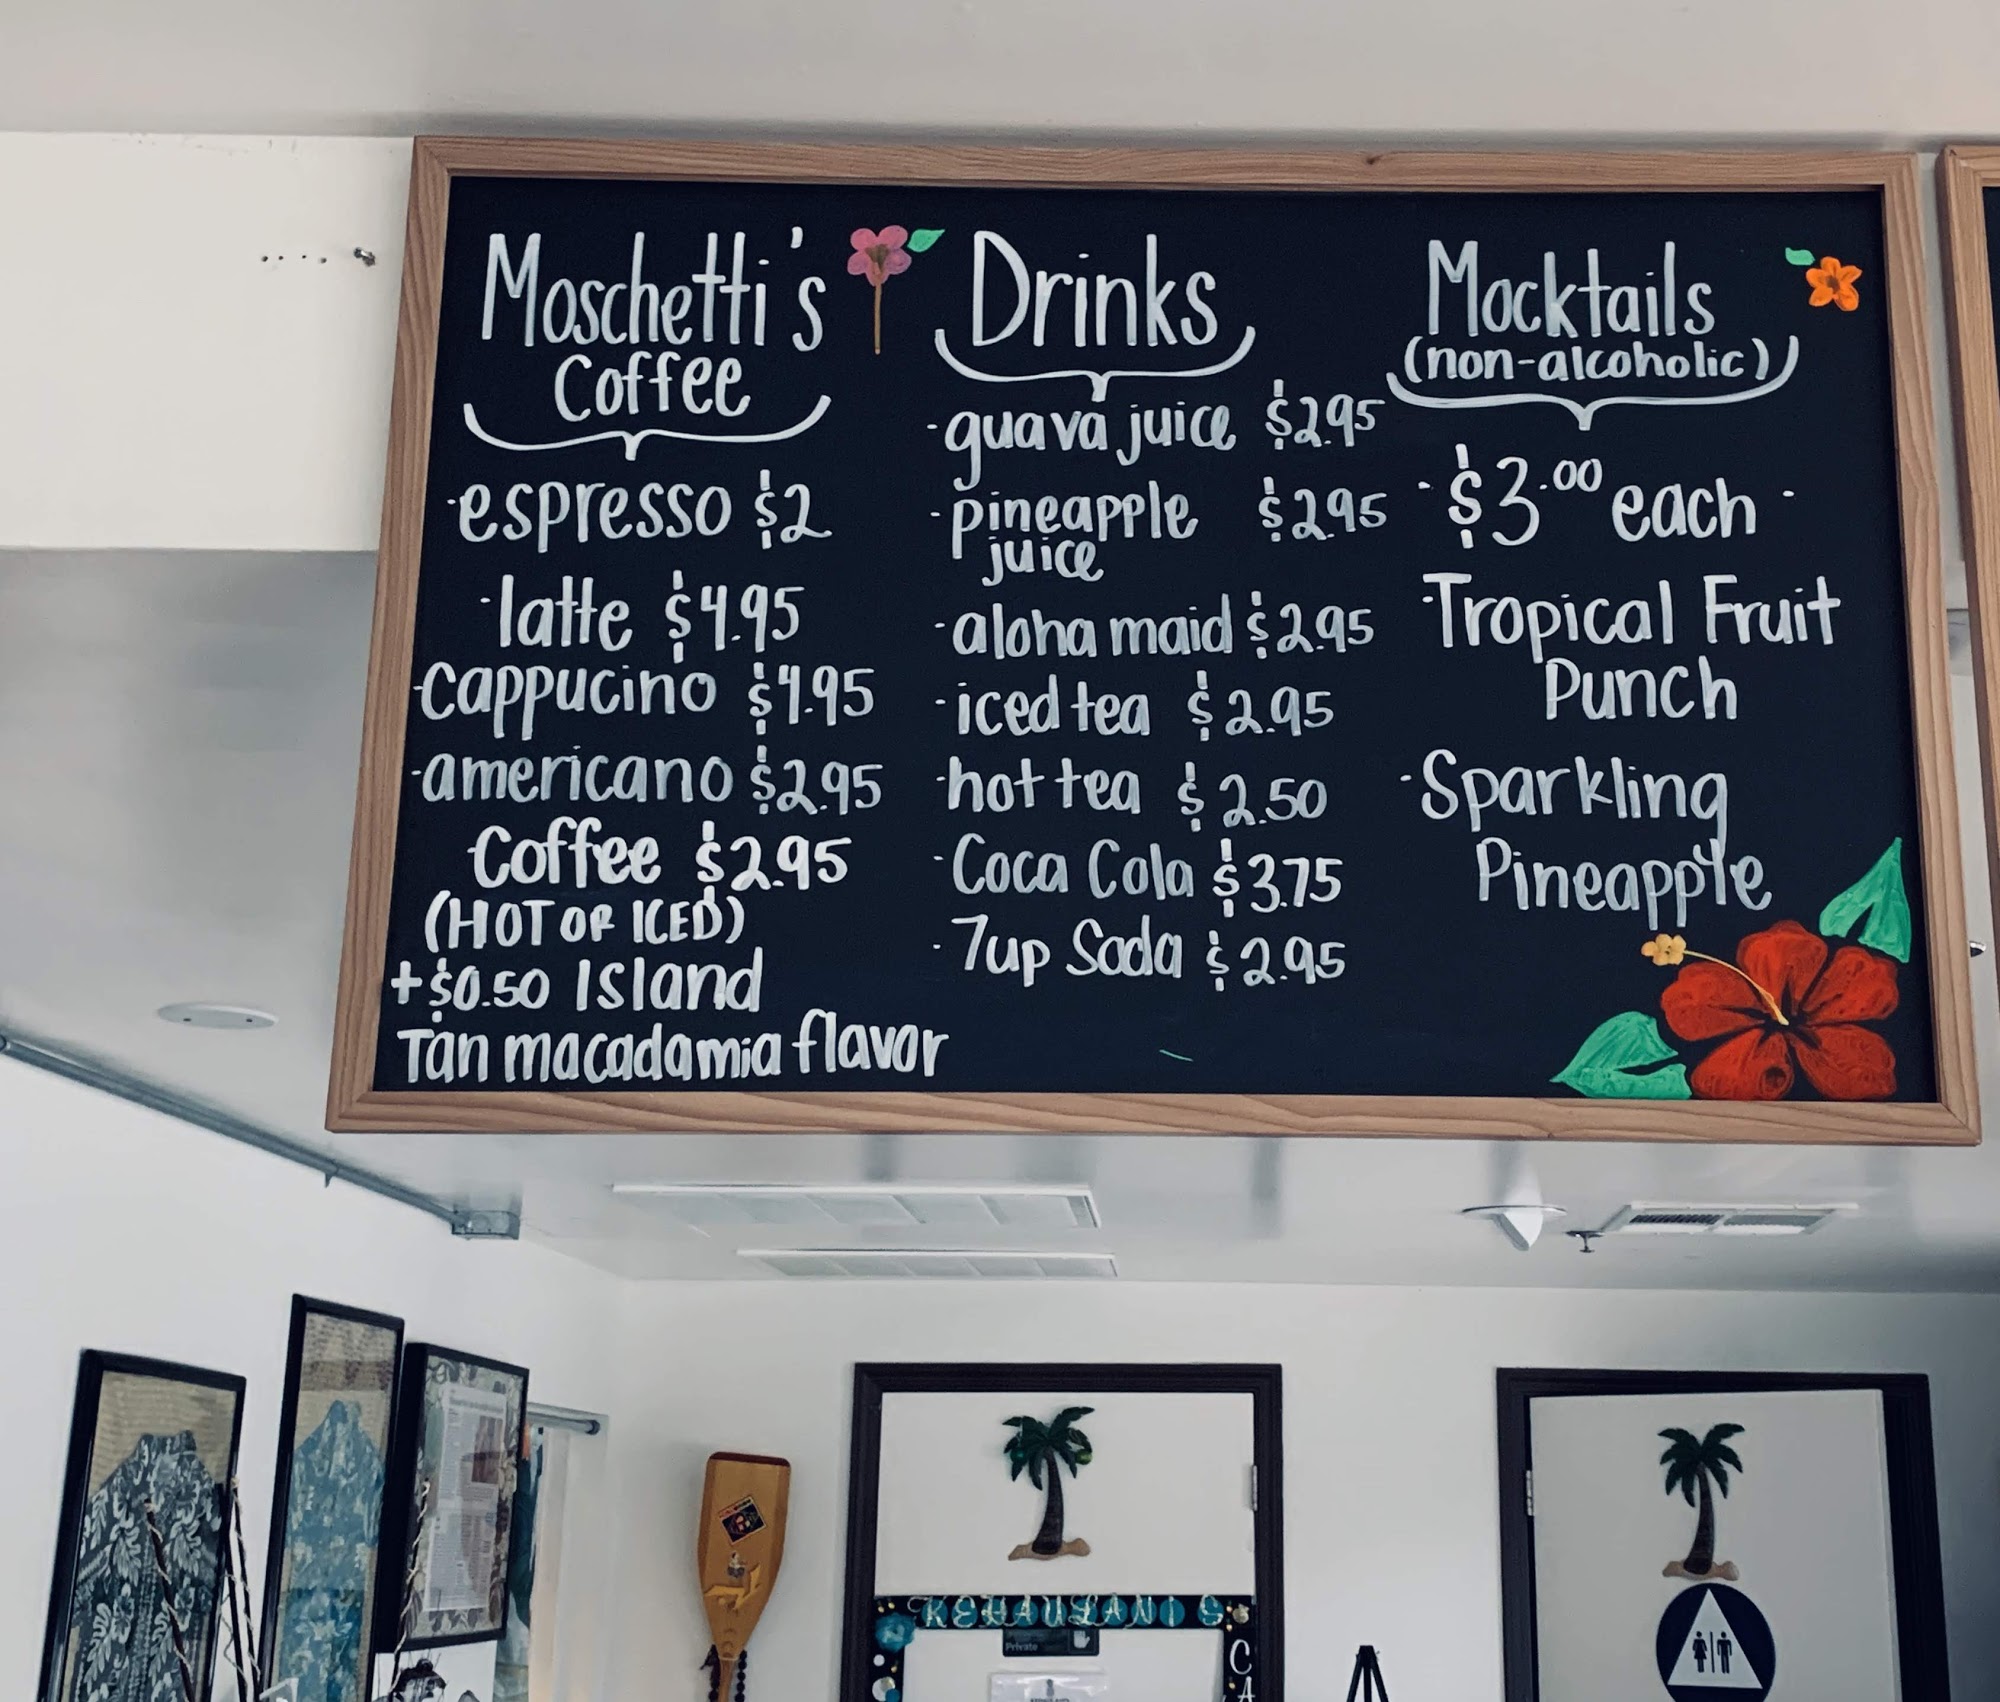 Moschetti's
Coffee
·espresso $2
·latte $4.95
·cappucino $4.95
·americano $2.95
·Coffee $2.95
(HOT OR ICED)
+$0.50 Island
Tan macadamia flavor
Drinks
·guava juice $2.95
·pineapple $2.95
juice
·aloha maid $2.95
·iced tea $2.95
·hot tea $2.50
·Coca Cola $3.75
·7up Soda $2.95
Mocktails
(non-alcoholic)
·$3.00 each·
·Tropical Fruit
Punch
·Sparkling
Pineapple
KEHAULANI'S
CA
Private